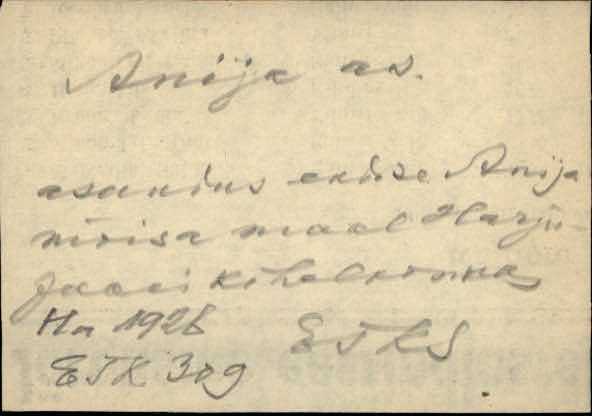 Anija as.
asundus endise Anija
mõisa maal Harju-
Jaani kihelkonna
Ha 1926 ETKS
ETK 309